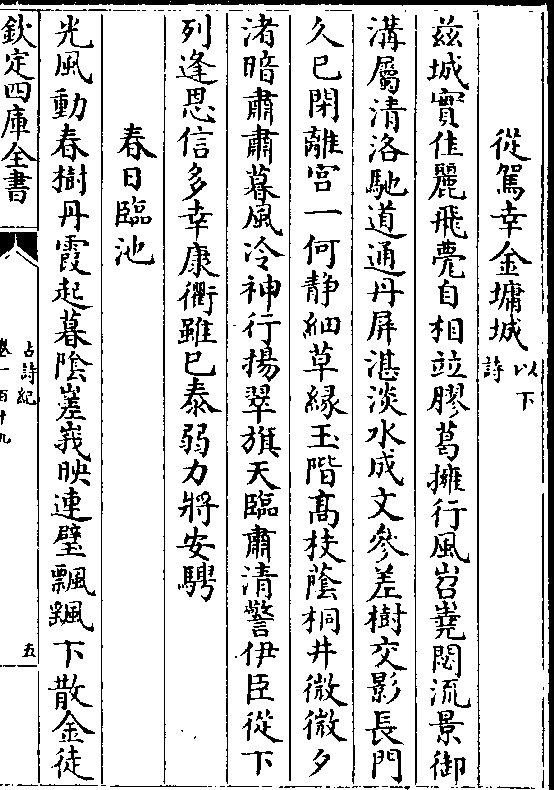 從駕幸金墉城以下詩
茲城實佳麗飛甍自相竝膠葛擁行風岧嶤閟流景御
溝屬清洛馳道通丹屏湛淡水成文參差樹交影長門
久已閉離宮一何静細草縁玉階髙枝蔭桐井微微夕
渚暗肅肅暮風冷神行揚翠旗天臨肅清警伊臣從下
列逢恩信多幸康衢雖已泰弱力將安騁
春日臨池
光風動春樹丹霞起暮陰嵳峩映連璧飄颻下散金徒
欽定四庫全書
古詩紀
卷一百十九
五